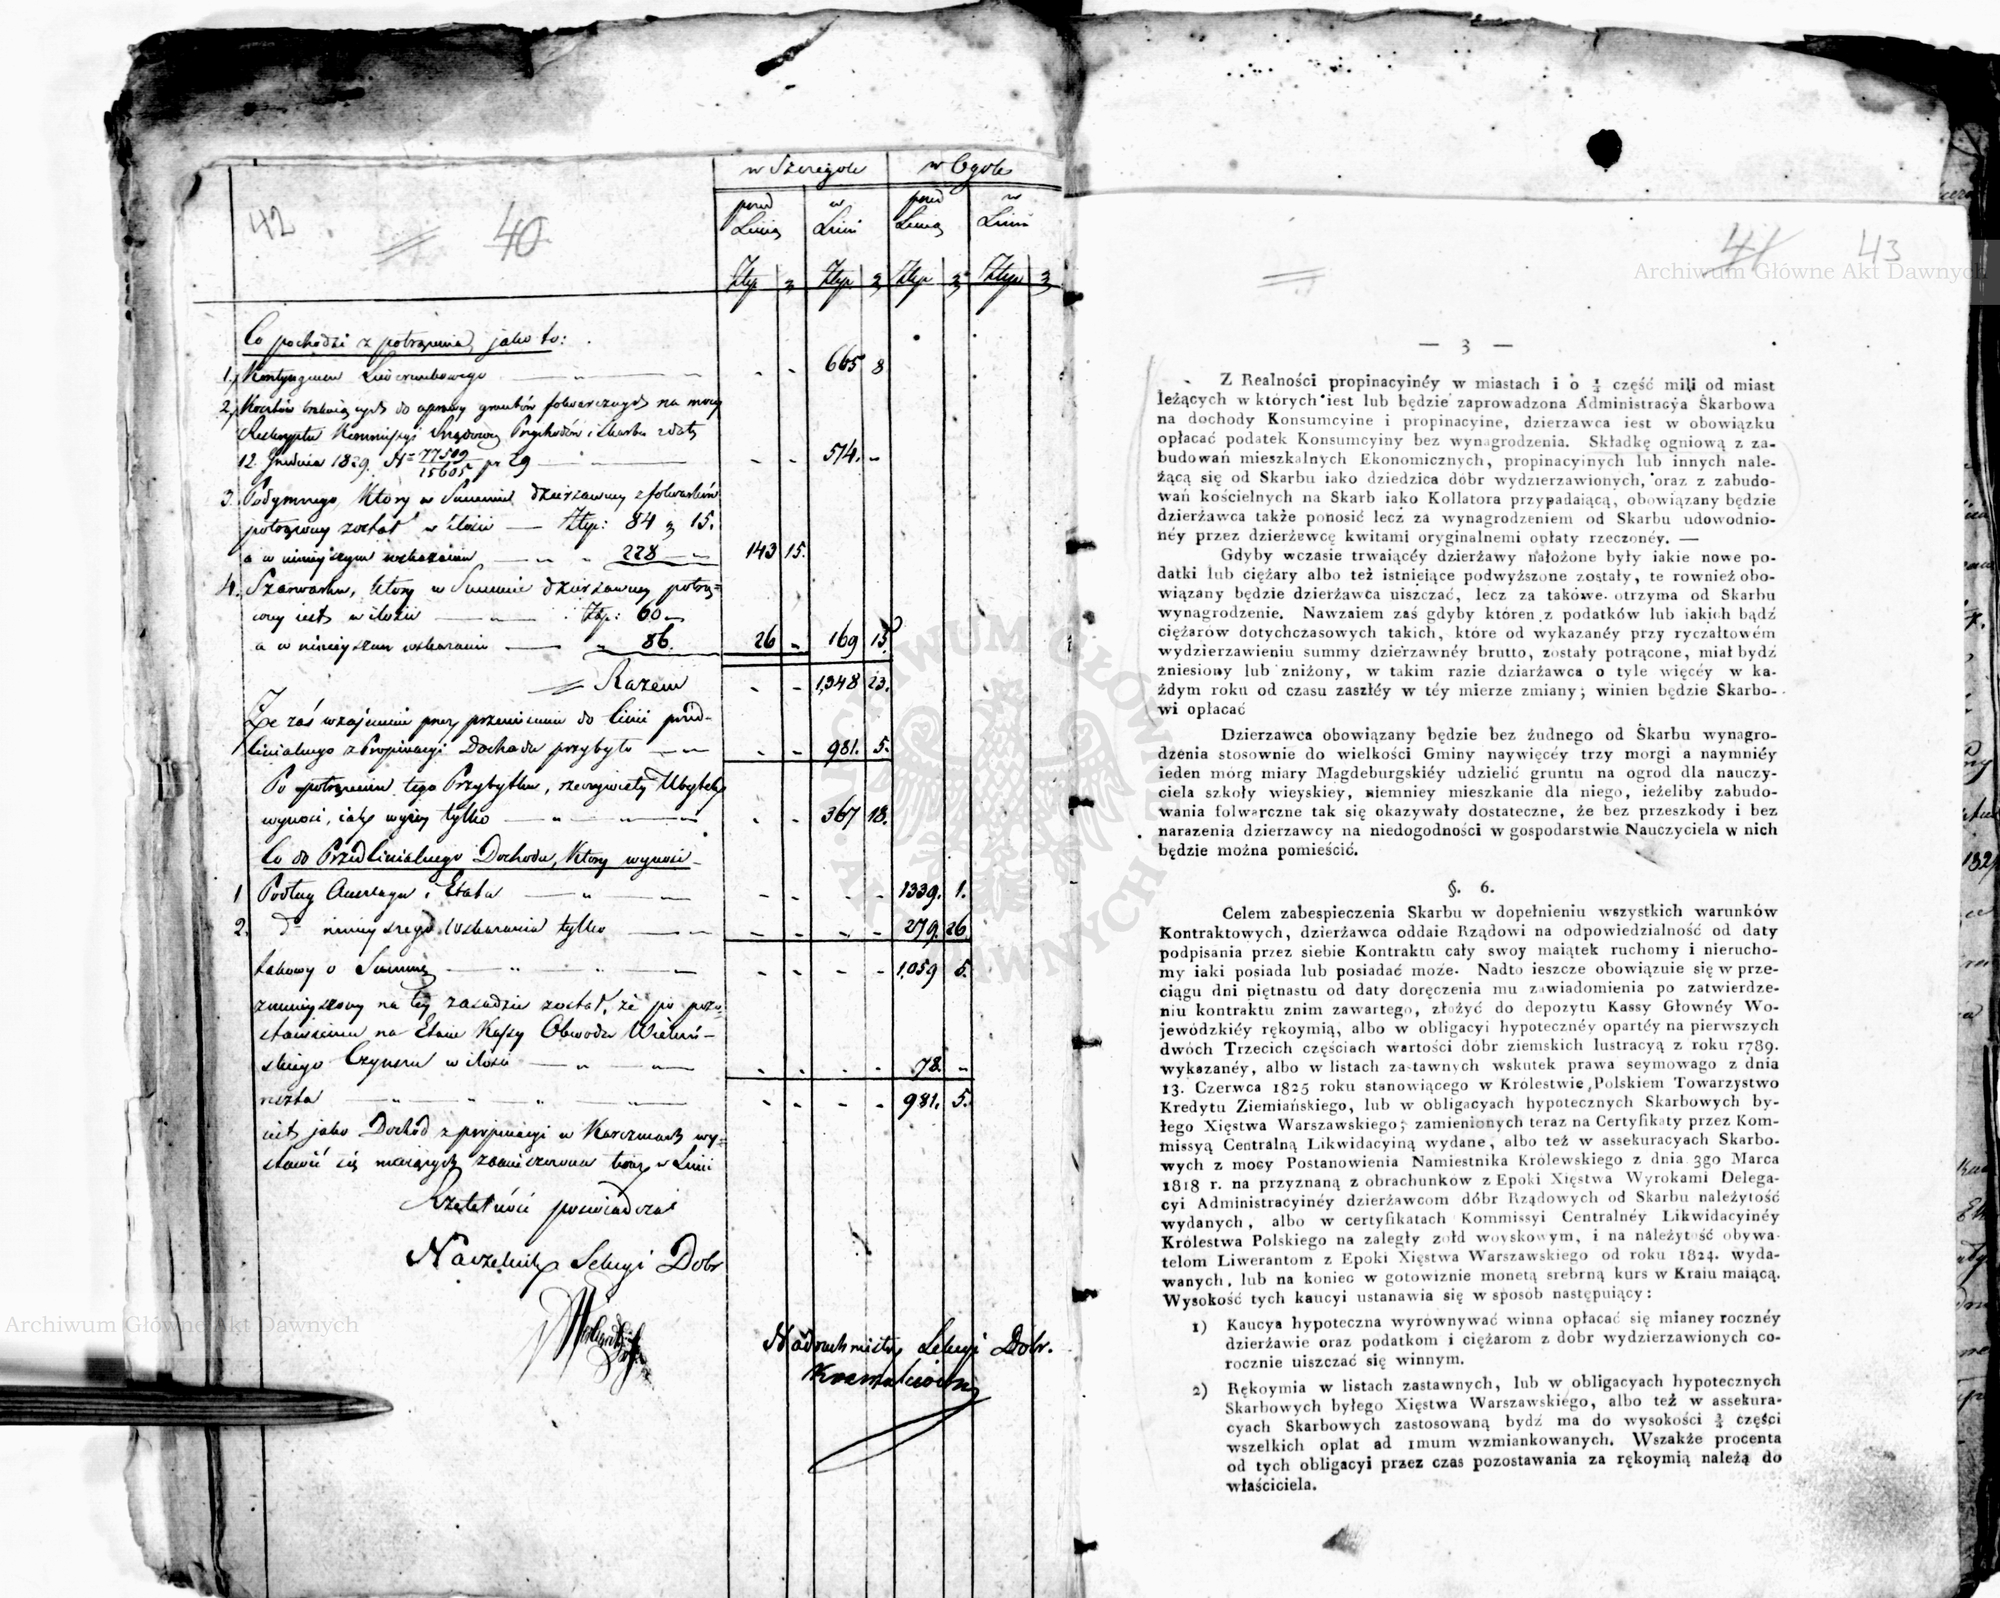 w Szczegole w Ogole
przed Linią w Linii przed Linią w Linii
Złtp gr Złtp gr Złtp gr Złtp gr
42 40
Co pochodzi z potrącenia jako to:
1. Kontyngensu Liwerunkowego — 665 8
2. Kosztów do uprawy gruntów folwarcznych na mocy
Reskryptu Kommissyi Rządowey Przychodów i Skarbu z daty
12. Grudnia 1829. N 77509/15605 pr 29 — 514. -
3. Podymnego, Który w Summie dzierzawney z folwarków
potrącony został w ilości — Złtp: 84 gr 15.
a w ninieyszem wykazaniu — 228 — 143 15.
4. Szarwarku, który w Summie dzierzawney potrą=
cony iest w ilości — Złtp: 60
a w ninieyszem wykazaniu — 86. 26 - 169 15.
Razem - - 1,348 23.
Że zaś wzajemnie przez przeniesienie do Linii przed-
linialnego z Propinacyi Dochodu przybyło — 981. 5.
Po potrąceniu tego Przybytku, rzeczywisty Ubytek
wynosi, iak wyżey tylko — 367 18.
Co do Przedlinialnego Dochodu, Który wynosi
1 Podług Anszlagu i Etatu — 1339. 1.
2. d° ninieyszego Wykazania tylko — 279. 26
takowy o Summę — 1,059 5.
zmnieyszony na tey zasadzie został, że po pozo=
stawieniu na Etacie Kassy Obwodu Wieluń-
skiego Czynszu w ilości — 78. -
reszta — 981. 5.
iest jako Dochód z propinacyi w Karczmach wy=
stawić się maiących zamieszczona teraz w Linii
Rzetelność poświadcza
Naczelnik Sekcyi Dobr
Nadrachmistrz Sekcyi Dobr.
41 43
— 3 —
Z Realności propinacyinéy w miastach i o ¼ część mili od miast
leżących w których iest lub będzie zaprowadzona Administracya Skarbowa
na dochody Konsumcyine i propinacyine, dzierzawca iest w obowiązku
opłacać podatek Konsumcyiny bez wynagrodzenia. Składkę ogniową z za-
budowań mieszkalnych Ekonomicznych, propinacyinych lub innych nale-
żącą się od Skarbu iako dziedzica dóbr wydzierzawionych, oraz z zabudo-
wań kościelnych na Skarb iako Kollatora przypadaiącą, obowiązany będzie
dzierżawca także ponosić lecz za wynagrodzeniem od Skarbu udowodnio-
néy przez dzierżewcę kwitami oryginalnemi opłaty rzeczonéy. —
Gdyby wczasie trwaiącéy dzierżawy nałożone były iakie nowe po-
datki lub ciężary albo też istnieiące podwyższone zostały, te rownież obo-
wiązany będzie dzierżawca uiszczać, lecz za takowe otrzyma od Skarbu
wynagrodzenie. Nawzaiem zaś gdyby któren z podatków lub iakich bądź
ciężarow dotychczasowych takich, które od wykazanéy przy ryczałtowém
wydzierzawieniu summy dzierzawnéy brutto, zostały potrącone, miał bydź
zniesiony lub zniżony, w takim razie dziarżawca o tyle więcéy w ka-
żdym roku od czasu zaszłéy w téy mierze zmiany; winien będzie Skarbo-
wi opłacać
Dzierzawca obowiązany będzie bez żudnego od Skarbu wynagro-
dzenia stosownie do wielkości Gminy naywięcéy trzy morgi a naymniéy
ieden mórg miary Magdeburgskiéy udzielić gruntu na ogrod dla nauczy-
ciela szkoły wieyskiey, niemniey mieszkanie dla niego, ieżeliby zabudo-
wania folwarczne tak się okazywały dostateczne, że bez przeszkody i bez
narazenia dzierzawcy na niedogodności w gospodarstwie Nauczyciela w nich
będzie można pomieścić.
§. 6.
Celem zabespieczenia Skarbu w dopełnieniu wszystkich warunków
Kontraktowych, dzierżawca oddaie Rządowi na odpowiedzialność od daty
podpisania przez siebie Kontraktu cały swoy maiątek ruchomy i nierucho-
my iaki posiada lub posiadać może. Nadto ieszcze obowiązuie się w prze-
ciągu dni piętnastu od daty doręczenia mu zawiadomienia po zatwierdze-
niu kontraktu znim zawartego, złożyć do depozytu Kassy Głownéy Wo-
jewódzkiéy rękoymią, albo w obligacyi hypotecznéy opartéy na pierwszych
dwóch Trzecich częściach wartości dóbr ziemskich lustracyą z roku 1789.
wykazanéy, albo w listach zastawnych wskutek prawa seymowago z dnia
13. Czerwca 1825 roku stanowiącego w Królestwie Polskiem Towarzystwo
Kredytu Ziemiańskiego, lub w obligacyach hypotecznych Skarbowych by-
łego Xięstwa Warszawskiego; zamienionych teraz na Certyfikaty przez Kom-
missyą Centralną Likwidacyiną wydane, albo też w assekuracyach Skarbo-
wych z mocy Postanowienia Namiestnika Królewskiego z dnia 3go Marca
1818 r. na przyznaną z obrachunków z Epoki Xięstwa Wyrokami Delega-
cyi Administracyinéy dzierżawcom dóbr Rządowych od Skarbu należytość
wydanych, albo w certyfikatach Kommissyi Centralnéy Likwidacyinéy
Królestwa Polskiego na zaległy zołd woyskowym, i na należytość obywa-
telom Liwerantom z Epoki Xięstwa Warszawskiego od roku 1824. wyda-
wanych, lub na koniec w gotowiznie monetą srebrną kurs w Kraiu maiącą.
Wysokość tych kaucyi ustanawia się w sposob następuiący:
1) Kaucya hypoteczna wyrównywać winna opłacać się mianey rocznéy
dzierżawie oraz podatkom i ciężarom z dobr wydzierzawionych co-
rocznie uiszczać się winnym.
2) Rękoymia w listach zastawnych, lub w obligacyach hypotecznych
Skarbowych byłego Xięstwa Warszawskiégo, albo też w assekura-
cyach Skarbowych zastosowaną bydź ma do wysokości ¾ części
wszelkich opłat ad 1mum wzmiankowanych. Wszakże procenta
od tych obligacyi przez czas pozostawania za rękoymią należą do
właściciela.
Archiwum Główne Akt Dawnych
Archiwum Główne Akt Dawnych
ARCHIWUM GŁÓWNE AKT DAWNYCH